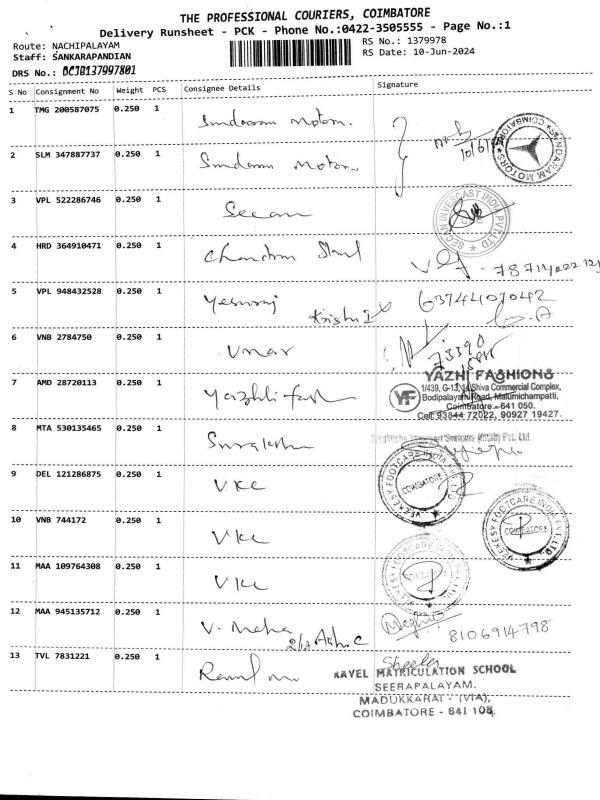 THE PROFESSIONAL COURIERS, COIMBATORE
Delivery Runsheet - PCK - Phone No.:0422-3505555 - Page No.:1
Route: NACHIPALAYAM
RS No.: 1379978
Staff: SANKARAPANDIAN
RS Date: 10-Jun-2024
DRS No.:
S No Consignment No Weight PCS Consignee Details Signature
1 TMG 200587075 0.250 1 Sundaram Motors.
COIMBATORE SUNDARAM MOTORS
2 SLM 347887737 0.250 1 Sundaram Motors.
3 VPL 522286746 0.250 1 Secan
SECAN INVESCAST INDIA PVT LTD
4 HRD 364910471 0.250 1
5 VPL 948432528 0.250 1 Yesuraj
6374407042
6 VNB 2784750 0.250 1 Umar
7 AMD 28720113 0.250 1
YAZHI FASHIONS
YF
1/439, G-13,14 Shiva Commercial Complex,
Bodipalayam Road, Malumichampatti,
Coimbatore - 641 050.
Cell: 93844 72022, 90927 19427.
8 MTA 530135465 0.250 1
Pvt. Ltd.
9 DEL 121286875 0.250 1 VKC
VEEKESY FOOTCARE INDIA PVT LTD COIMBATORE
10 VNB 744172 0.250 1 VKC
VEEKESY FOOTCARE INDIA PVT LTD COIMBATORE
11 MAA 109764308 0.250 1 VKC
12 MAA 945135712 0.250 1 V. Meha
8106914798
13 TVL 7831221 0.250 1
Sheeler
KAVEL MATRICULATION SCHOOL
SEERAPALAYAM.
MADUKKARAI - (VIA),
COIMBATORE - 641 105.